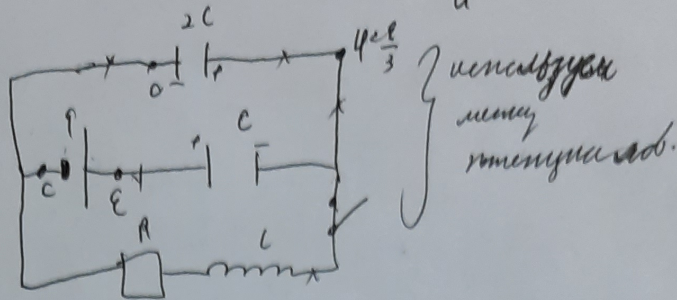 2C
φ = ε/3
используем
метод
потенциалов.
0 -
+
C
+ -
C
ε
R
L